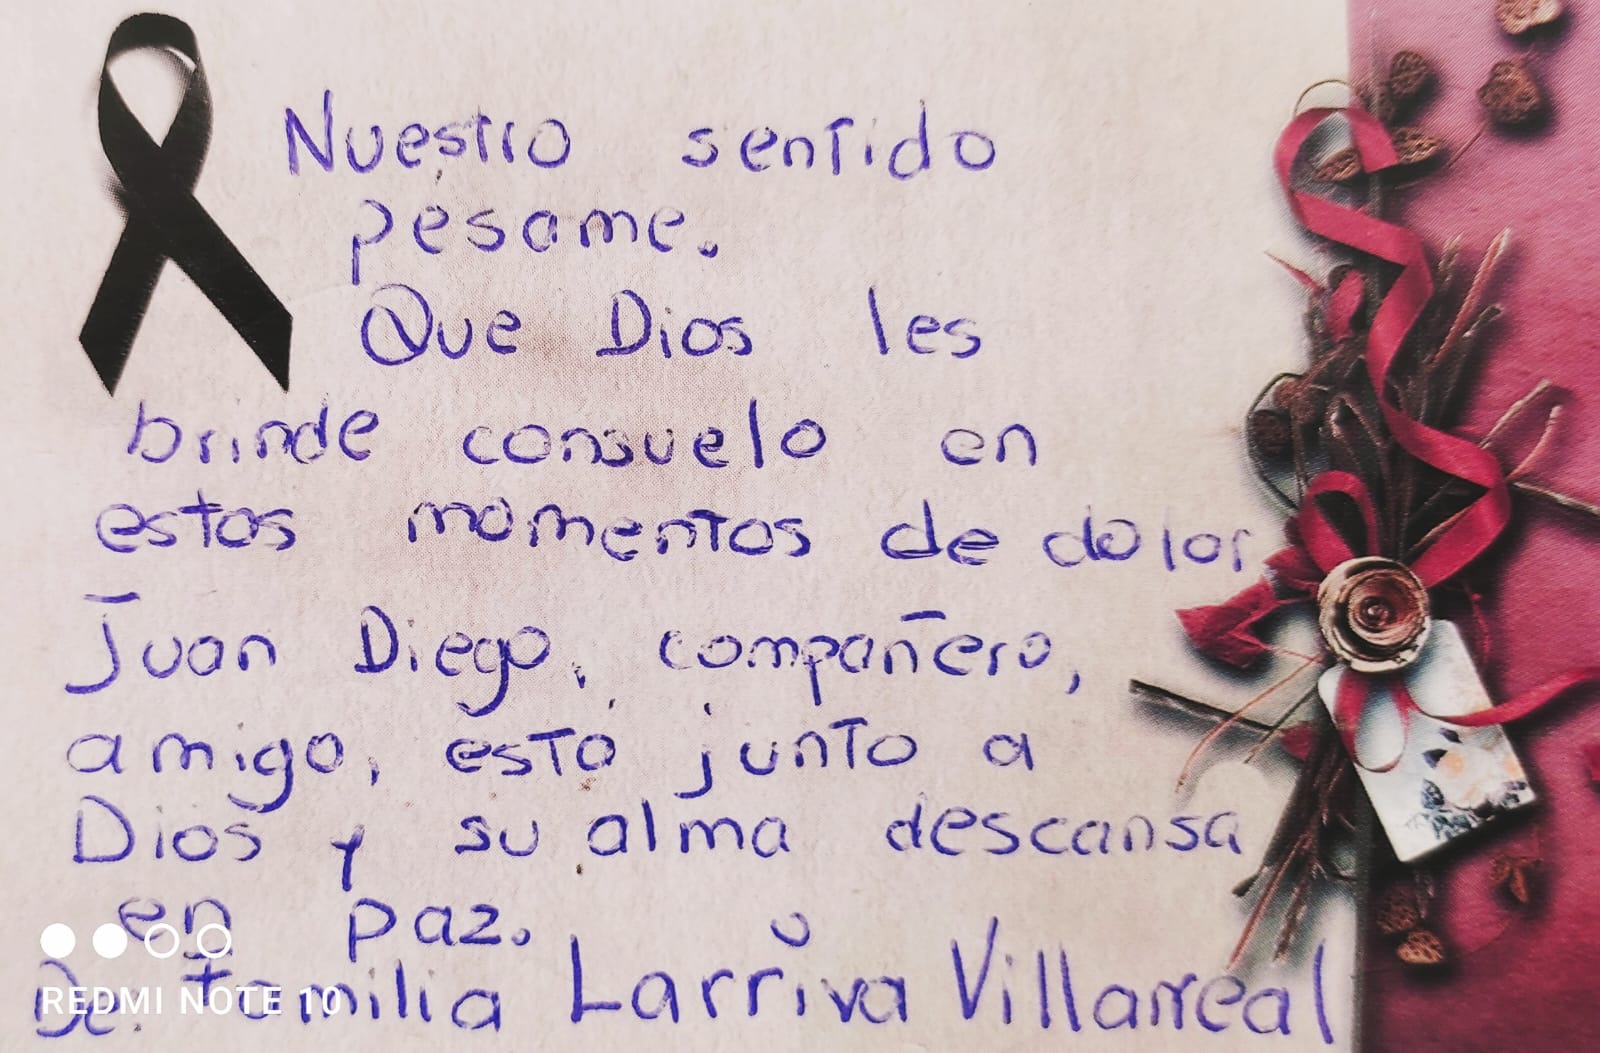 Nuestro sentido
pesame.
Que Dios les
brinde consuelo en
estos momentos de dolor
Juan Diego, compañero,
amigo, esta junto a
Dios y su alma descansa
en paz.
De: familia Larriva Villarreal
REDMI NOTE 10